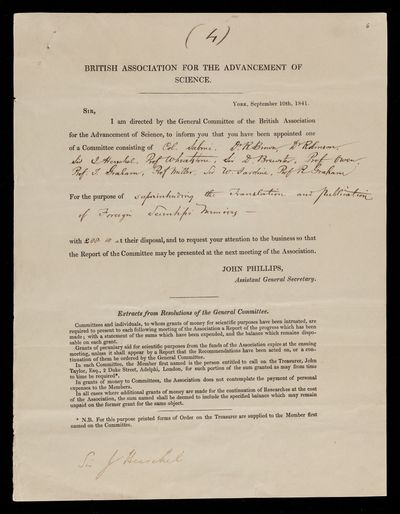 (4)
6
BRITISH ASSOCIATION FOR THE ADVANCEMENT OF
SCIENCE.
YORK, September 10th, 1841.
SIR,
I am directed by the General Committee of the British Association
for the Advancement of Science, to inform you that you have been appointed one
of a Committee consisting of Col. Sabine. Dr R. Brown, Dr Robinson,
Sir J. Herschel, Prof Wheatstone, Sir D. Brewster, Prof Owen,
Prof. T. Graham, Prof Miller, Sir W. Jardine, Prof R. Graham
For the purpose of superintending the Translation and Publication
of Foreign Scientific Memoirs —
with £ at their disposal, and to request your attention to the business so that
the Report of the Committee may be presented at the next meeting of the Association.
JOHN PHILLIPS,
Assistant General Secretary.
Extracts from Resolutions of the General Committee.
Committees and individuals, to whom grants of money for scientific purposes have been intrusted, are
required to present to each following meeting of the Association a Report of the progress which has been
made; with a statement of the sums which have been expended, and the balance which remains dispo-
sable on each grant.
Grants of pecuniary aid for scientific purposes from the funds of the Association expire at the ensuing
meeting, unless it shall appear by a Report that the Recommendations have been acted on, or a con-
tinuation of them be ordered by the General Committee.
In each Committee, the Member first named is the person entitled to call on the Treasurer, John
Taylor, Esq., 2 Duke Street, Adelphi, London, for such portion of the sum granted as may from time
to time be required*.
In grants of money to Committees, the Association does not contemplate the payment of personal
expenses to the Members.
In all cases where additional grants of money are made for the continuation of Researches at the cost
of the Association, the sum named shall be deemed to include the specified balance which may remain
unpaid on the former grant for the same object.
* N.B. For this purpose printed forms of Order on the Treasurer are supplied to the Member first
named on the Committee.
Sir J Herschel